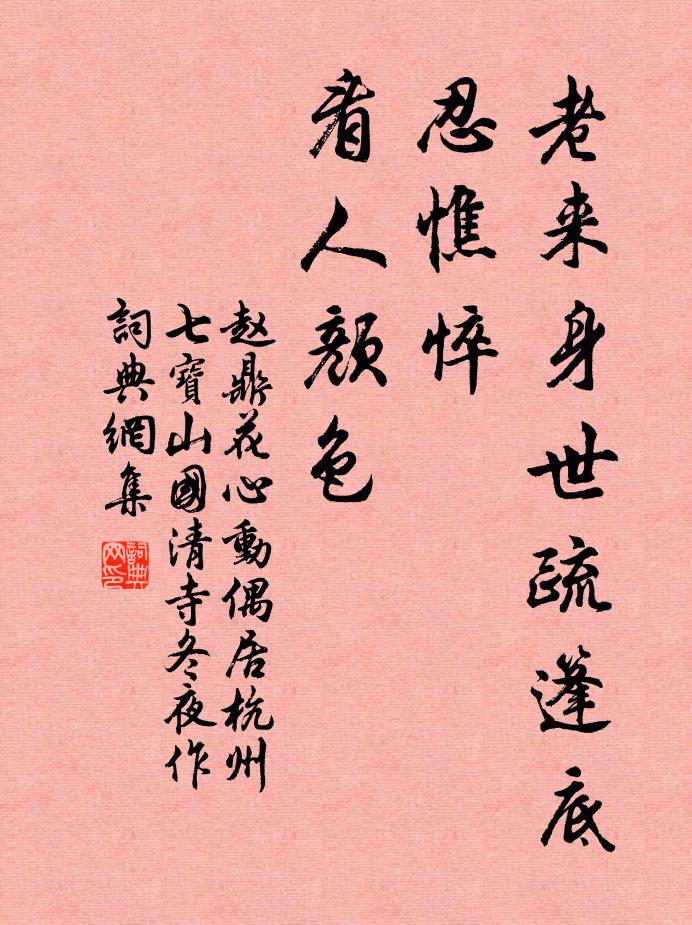 老来身世疏篷底
忍憔悴
看人顔色
赵鼎花心動偶居杭州
七寶山國清寺冬夜作
詞典網集
詞典网印